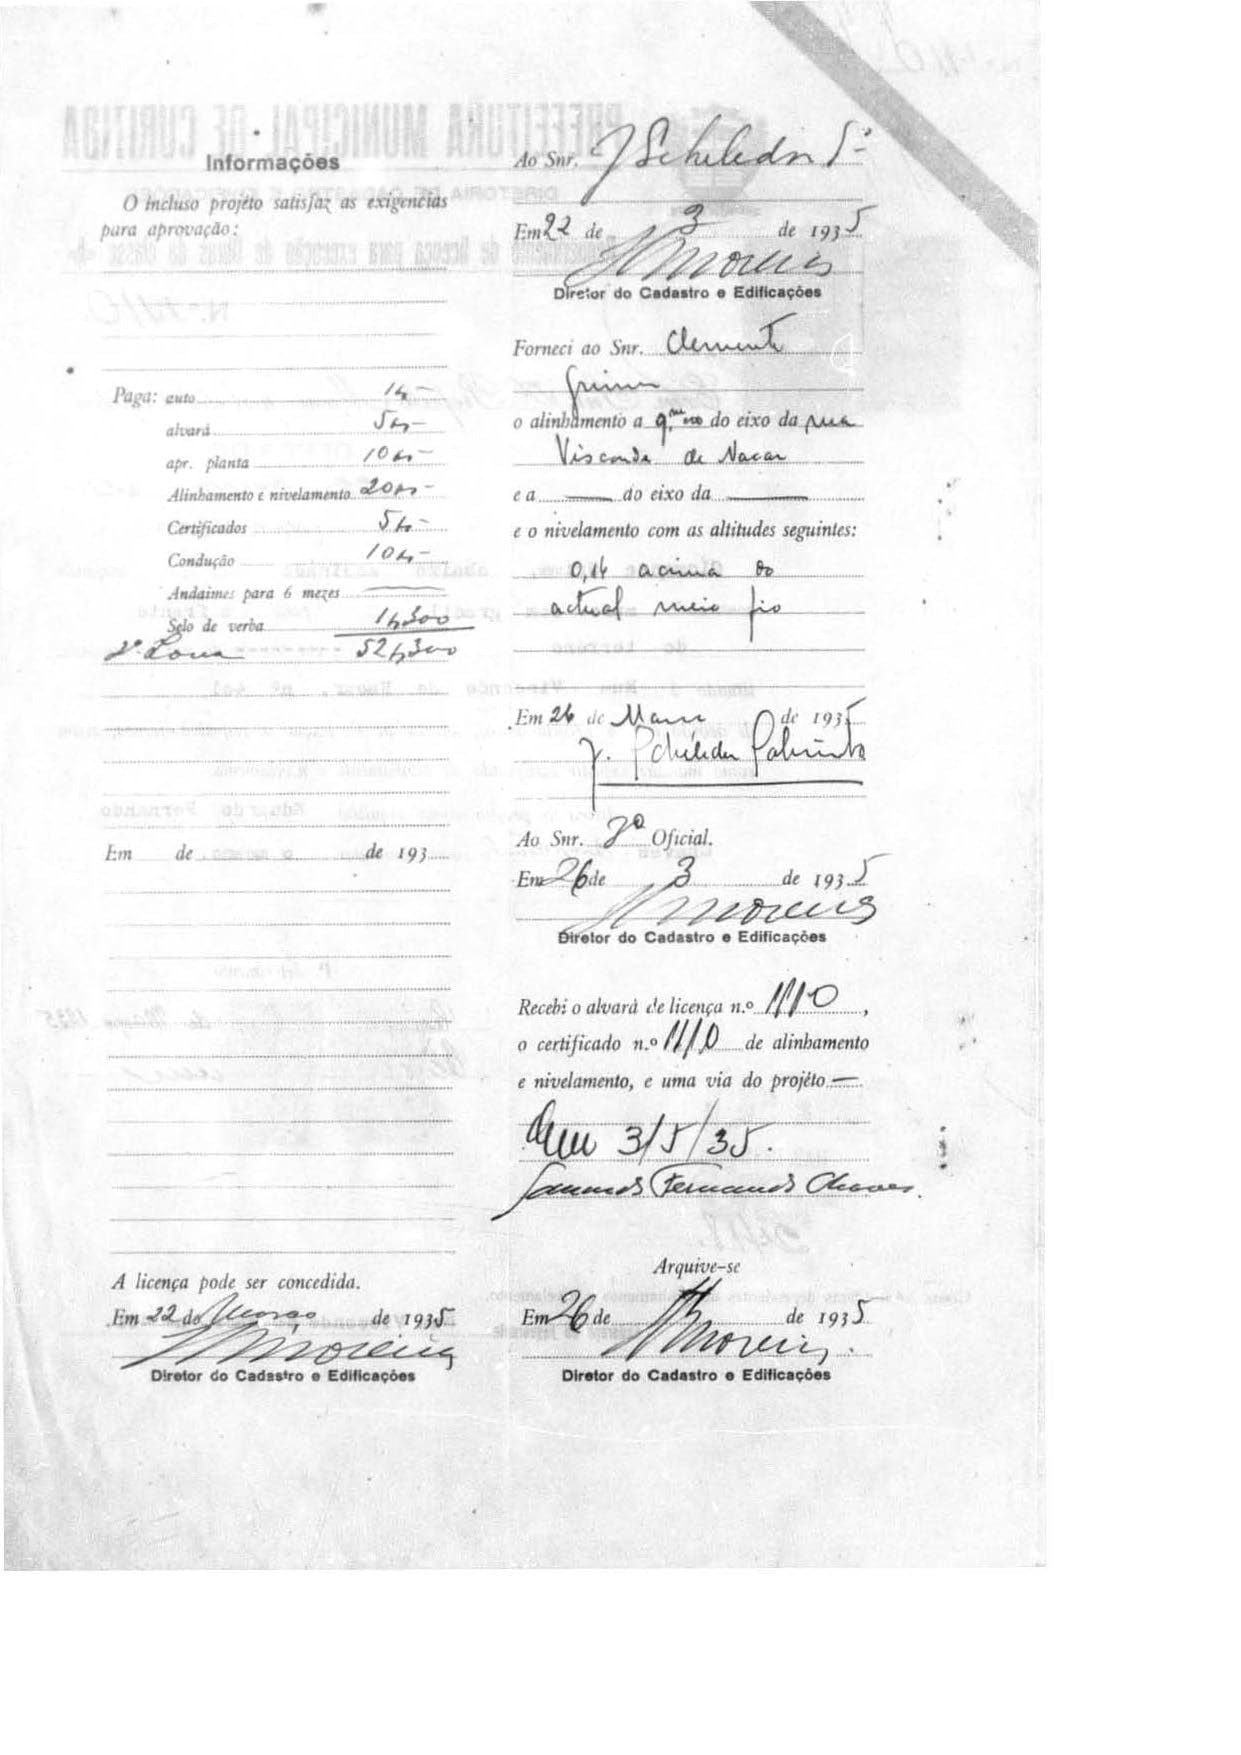 Informações
O incluso projéto satisfaz as exigencias
para aprovação:
Paga: auto 1$-
alvará 5$-
apr. planta 10$-
Alinhamento e nivelamento 20$-
Certificados 5$-
Condução 10$-
Andaimes para 6 mezes
Selo de verba 1$300
52$300
Em de de 193
A licença pode ser concedida.
Em 22 de Março de 1935
Moreira
Diretor do Cadastro e Edificações
Ao Snr. J Scheleder Sº
Em 22 de 3 de 1935
Moreira
Diretor do Cadastro e Edificações
Forneci ao Snr. Clemente
o alinhamento a 9, do eixo da rua
Visconde de Nacar
e a — do eixo da —
e o nivelamento com as altitudes seguintes:
0,14 acima do
actual meio fio
Em 26 de Março de 1935
J. Scheleder Sobrinho
Ao Snr. 2º Oficial.
Em 26 de 3 de 1935
Moreira
Diretor do Cadastro e Edificações
Recebi o alvará de licença n.º 1110,
o certificado n.º 1110 de alinhamento
e nivelamento, e uma via do projéto —
Em 3/5/35.
Fernando Chaves
Arquive-se
Em 26 de de 1935
Moreira
Diretor do Cadastro e Edificações